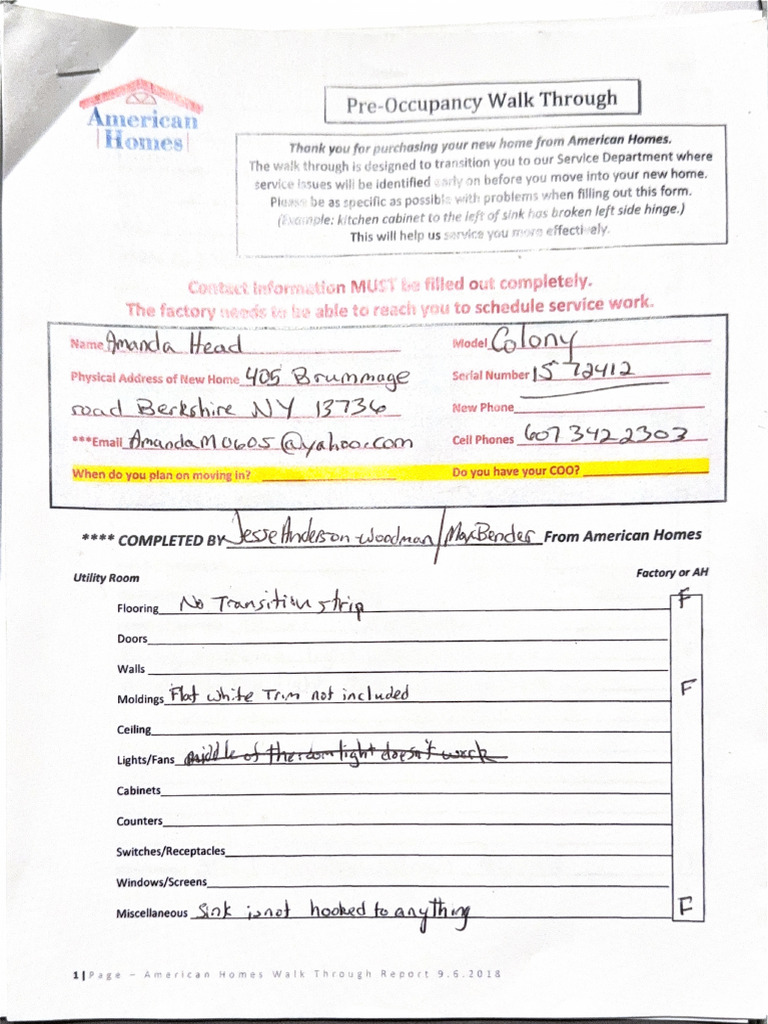 American
Homes
Pre-Occupancy Walk Through
Thank you for purchasing your new home from American Homes.
The walk through is designed to transition you to our Service Department where
service issues will be identified early on before you move into your new home.
Please be as specific as possible with problems when filling out this form.
(Example: kitchen cabinet to the left of sink has broken left side hinge.)
This will help us service you more effectively.
Contact Information MUST be filled out completely.
The factory needs to be able to reach you to schedule service work.
Name Amanda Head Model Colony
Physical Address of New Home 405 Brummage Serial Number 1572412
road Berkshire NY 13736 New Phone
***Email AmandaM0605@yahoo.com Cell Phones 607 342 2303
When do you plan on moving in? Do you have your COO?
**** COMPLETED BY Jesse Anderson-Woodman/Max Bender From American Homes
Utility Room Factory or AH
Flooring No Transition strip F
Doors
Walls
Moldings Flat white Trim not included F
Ceiling
Lights/Fans middle of the room light doesn't work
Cabinets
Counters
Switches/Receptacles
Windows/Screens
Miscellaneous Sink is not hooked to anything F
1|Page – American Homes Walk Through Report 9.6.2018